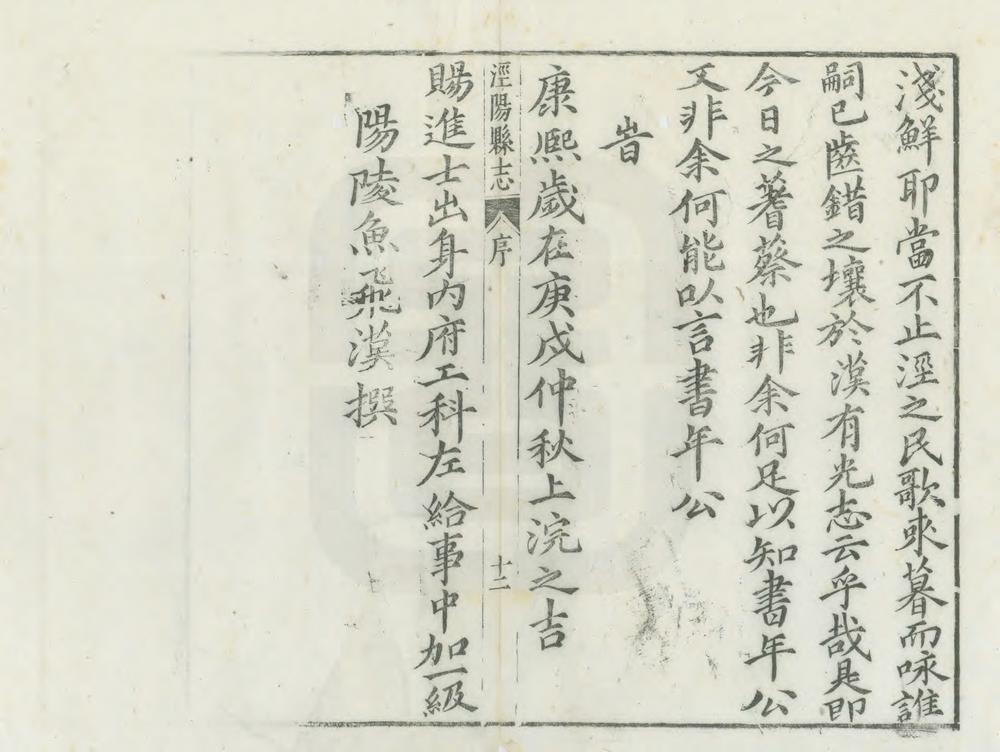 淺鮮耶當不止涇之民歌來暮而咏誰
嗣已齒錯之壤於漢有光志云乎哉是即
今日之蓍蔡也非余何足以知書年公
又非余何能以言書年公
旹
康熙歲在庚戌仲秋上浣之吉
涇陽縣志 序 十二
賜進士出身內府工科左給事中加一級
陽陵魚飛漢撰